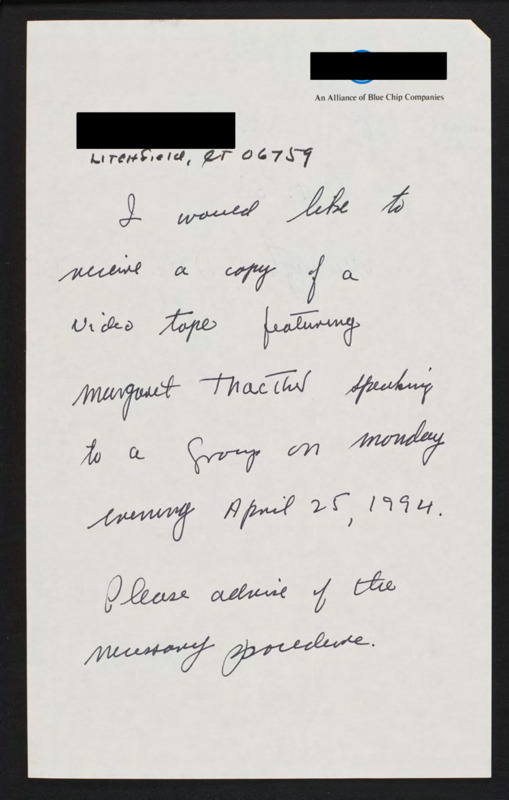 An Alliance of Blue Chip Companies
Litchfield, CT 06759
I would like to
receive a copy of a
video tape featuring
Margaret Thacther speaking
to a group on monday
evening April 25, 1994.
Please advise of the
necessary procedure.